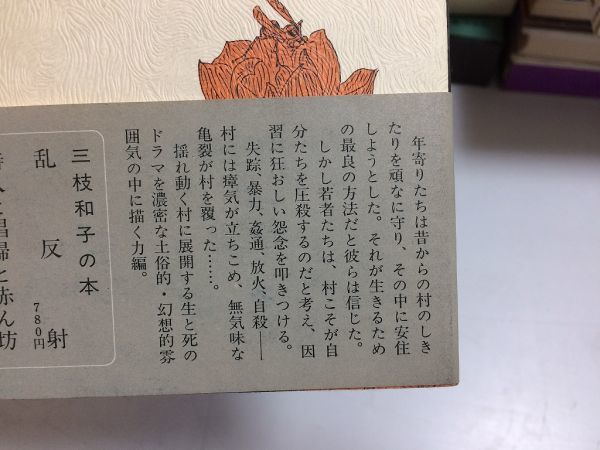 年寄りたちは昔からの村のしき
たりを頑なに守り、その中に安住
しようとした。それが生きるため
の最良の方法だと彼らは信じた。
しかし若者たちは、村こそが自
分たちを圧殺するのだと考え、因
習に狂おしい怨念を叩きつける。
失踪、暴力、姦通、放火、自殺――
村には瘴気が立ちこめ、無気味な
亀裂が村を覆った……。
揺れ動く村に展開する生と死の
ドラマを濃密な土俗的・幻想的雰
囲気の中に描く力編。
三枝和子の本
乱反射
780円
人と娼婦と赤ん坊